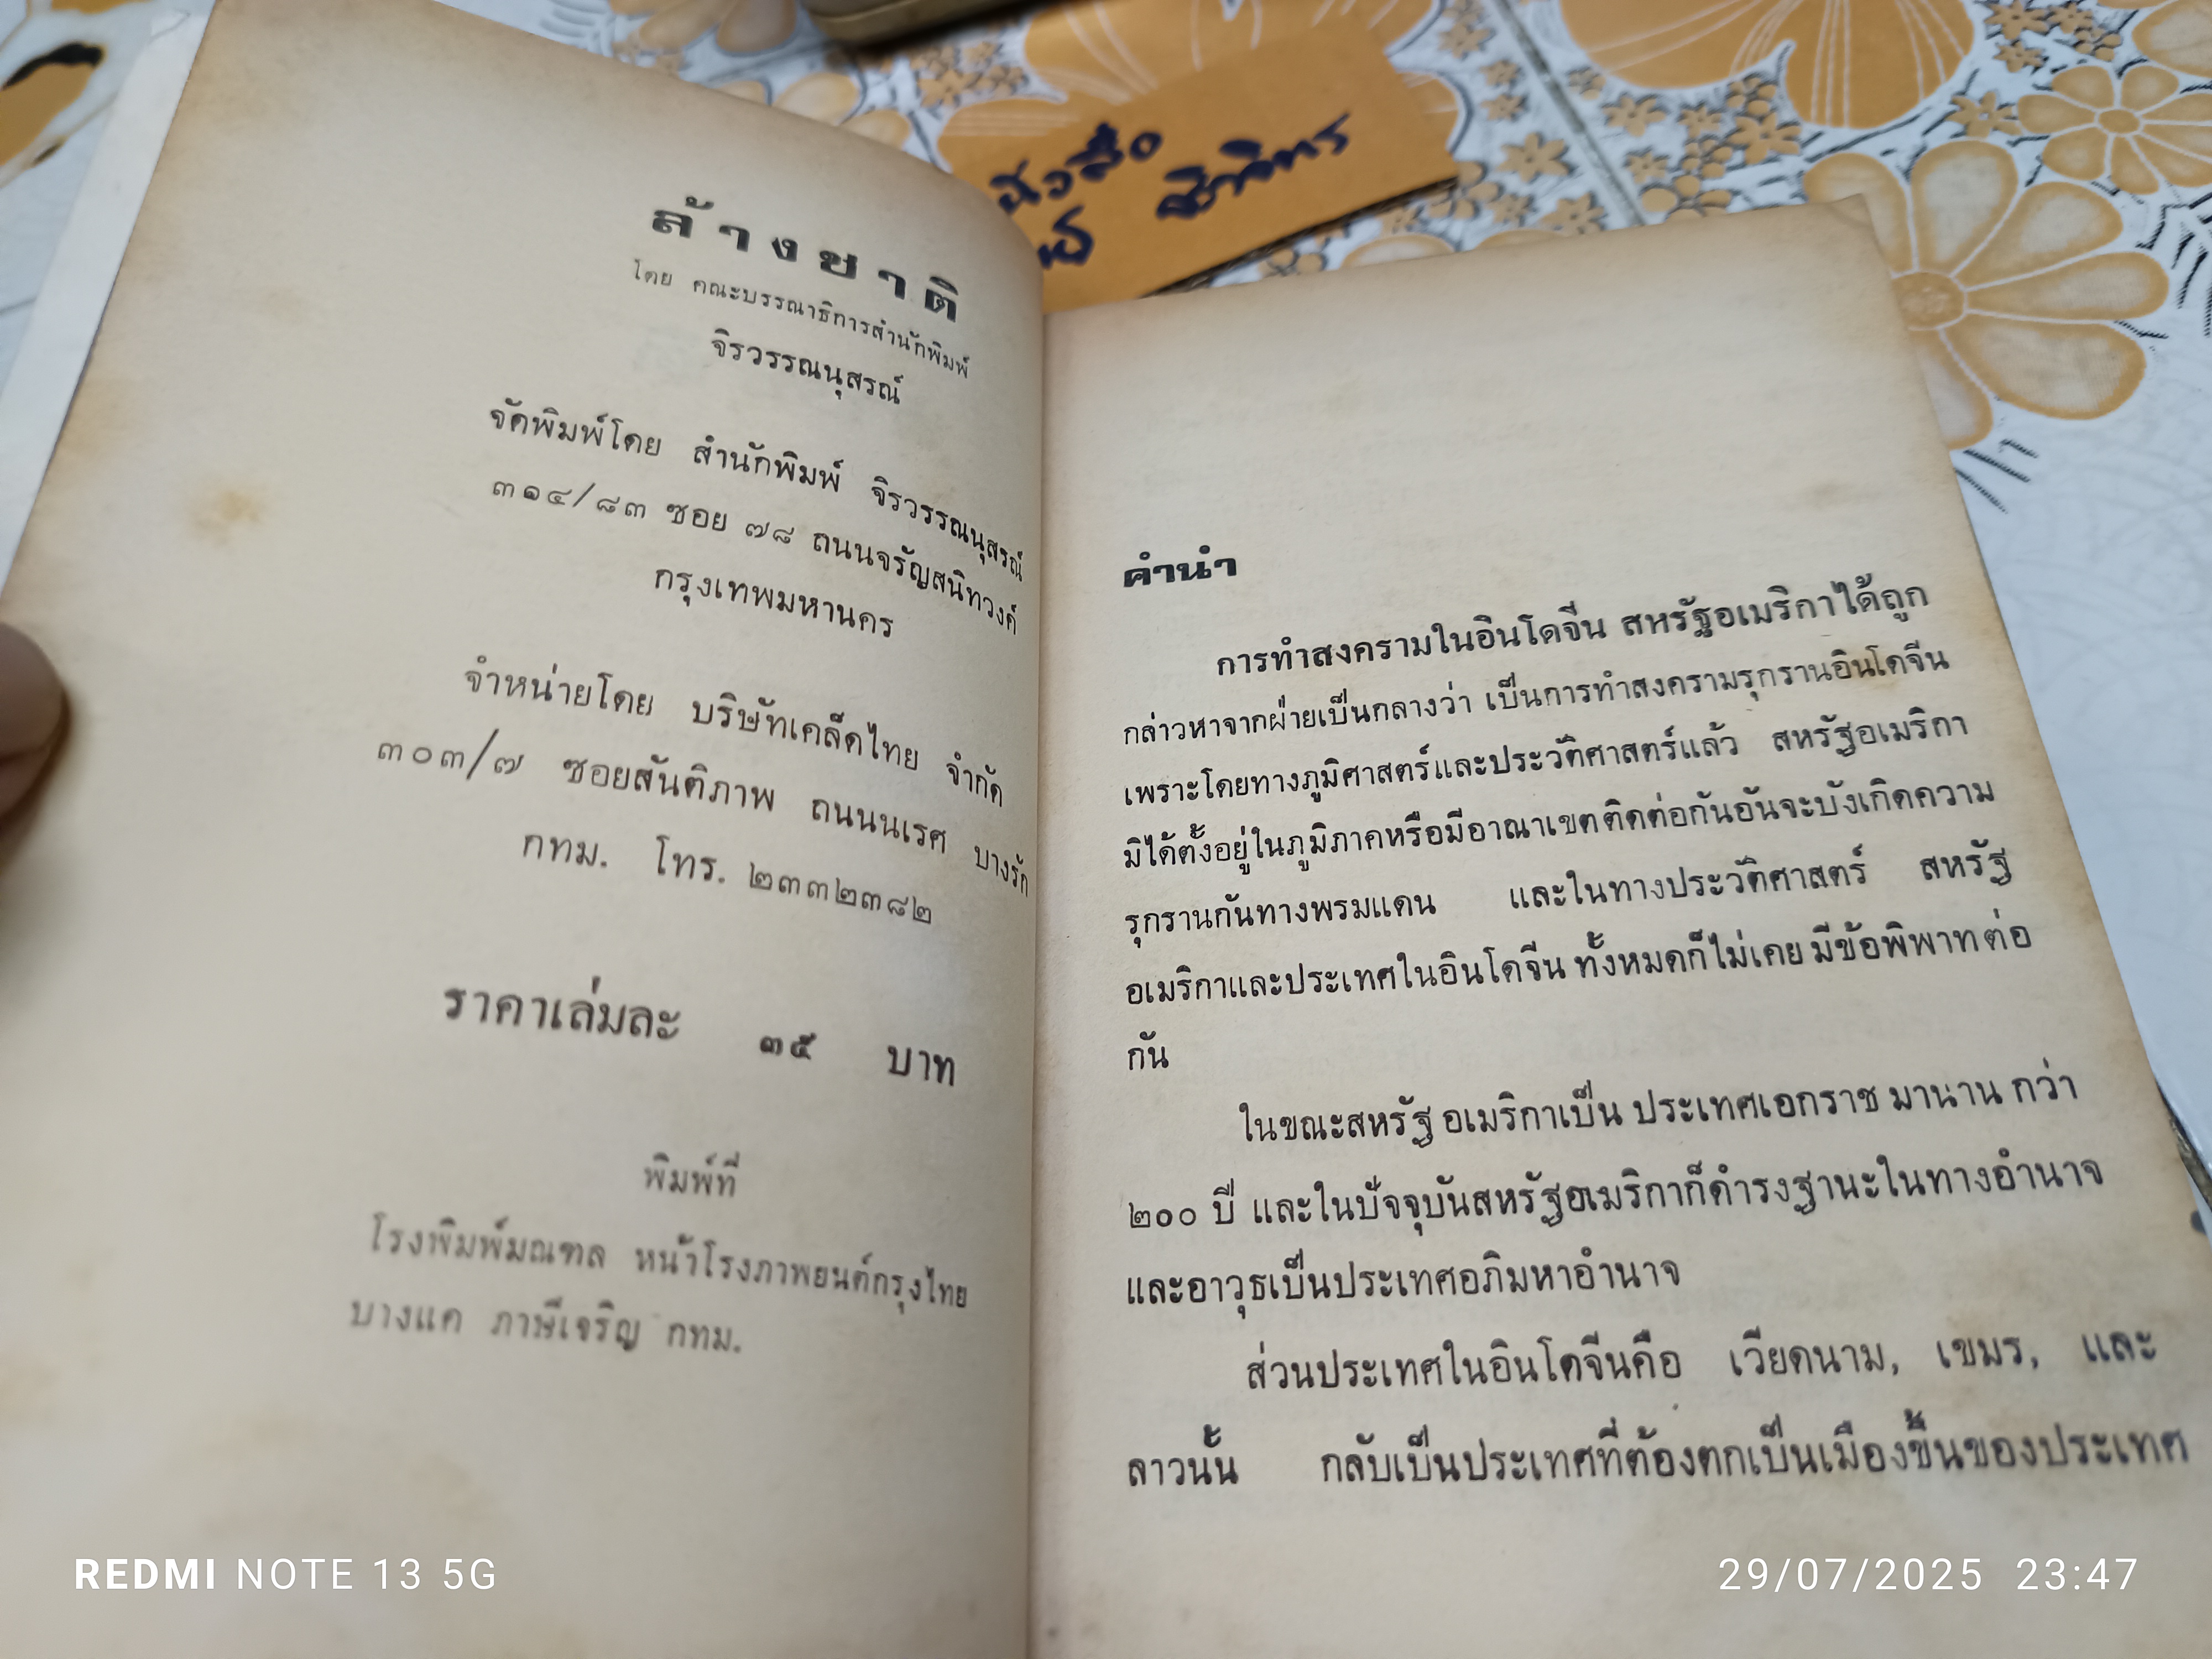 ล้างชาติ
โดย คณะบรรณาธิการสำนักพิมพ์
จิรวรรณนุสรณ์
จัดพิมพ์โดย สำนักพิมพ์ จิรวรรณนุสรณ์
๓๑๔/๘๓ ซอย ๗๘ ถนนจรัญสนิทวงศ์
กรุงเทพมหานคร
จำหน่ายโดย บริษัทเคล็ดไทย จำกัด
๓๐๓/๗ ซอยสันติภาพ ถนนนเรศ บางรัก
กทม. โทร. ๒๓๓๒๓๘๒
ราคาเล่มละ ๓๕ บาท
พิมพ์ที่
โรงพิมพ์มณฑล หน้าโรงภาพยนต์กรุงไทย
บางแค ภาษีเจริญ กทม.
คำนำ
การทำสงครามในอินโดจีน สหรัฐอเมริกาได้ถูก
กล่าวหาจากฝ่ายเป็นกลางว่า เป็นการทำสงครามรุกรานอินโดจีน
เพราะโดยทางภูมิศาสตร์และประวัติศาสตร์แล้ว สหรัฐอเมริกา
มิได้ตั้งอยู่ในภูมิภาคหรือมีอาณาเขตติดต่อกันอันจะบังเกิดความ
รุกรานกันทางพรมแดน และในทางประวัติศาสตร์ สหรัฐ
อเมริกาและประเทศในอินโดจีน ทั้งหมดก็ไม่เคย มีข้อพิพาท ต่อ
กัน
ในขณะสหรัฐ อเมริกาเป็น ประเทศเอกราช มานาน กว่า
๒๐๐ ปี และในปัจจุบันสหรัฐอเมริกาก็ดำรงฐานะในทางอำนาจ
และอาวุธเป็นประเทศอภิมหาอำนาจ
ส่วนประเทศในอินโดจีนคือ เวียดนาม, เขมร, และ
ลาวนั้น กลับเป็นประเทศที่ต้องตกเป็นเมืองขึ้นของประเทศ
REDMI NOTE 13 5G
29/07/2025 23:47